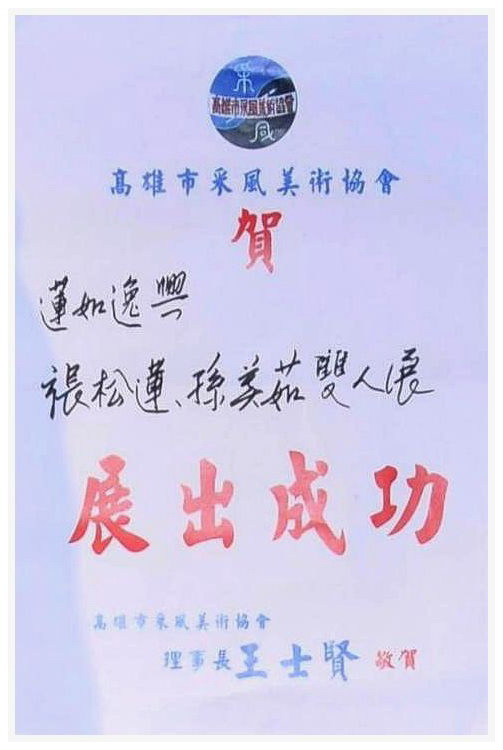 采
高雄市采風美術協會
風
高雄市采風美術協會
賀
蓮如逸興
張松蓮、孫美茹雙人展
展出成功
高雄市采風美術協會
理事長 王士賢 敬賀